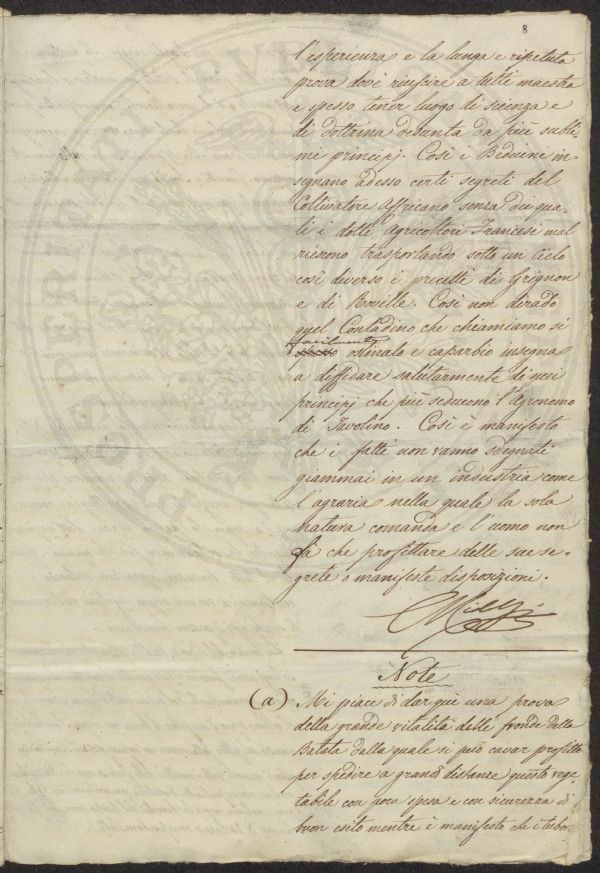 8
l'esperienza e la lunga e ripetuta
prova dovè riuscire a tutti maestra
e spesso tener luogo di scienza e
di dottrina desunta da più subli-
mi principj. Così i Beduini in-
segnano adesso certi segreti del
Coltivatore Affricano senza dei qua-
li i dotti Agricoltori Francesi mal
riescono trasportando sotto un Cielo
così diverso i precetti di Grignon
e di Roville. Così non dirado
quel Contadino che chiamiamo sì
facilmente
ostinato e caparbio insegna
a diffidare salutarmente di quei
principj che più seducono l'Agronomo
di Tavolino. Così è manifesto
che i fatti non vanno sdegnati
giammai in un industria come
l'agraria nella quale la sola
natura comanda e l'uomo non
fà che profittare delle sue se-
grete o manifeste disposizioni.
Note
(a) Mi piace di dar quì una prova
della grande vitalità delle fronde della
Batata dalla quale si può cavar profitto
per spedire a grandi distanze questo vege-
tabile con poca spesa e con sicurezza di
buon esito mentre è manifesto che i tuber-
PROSPERITATI PVBL